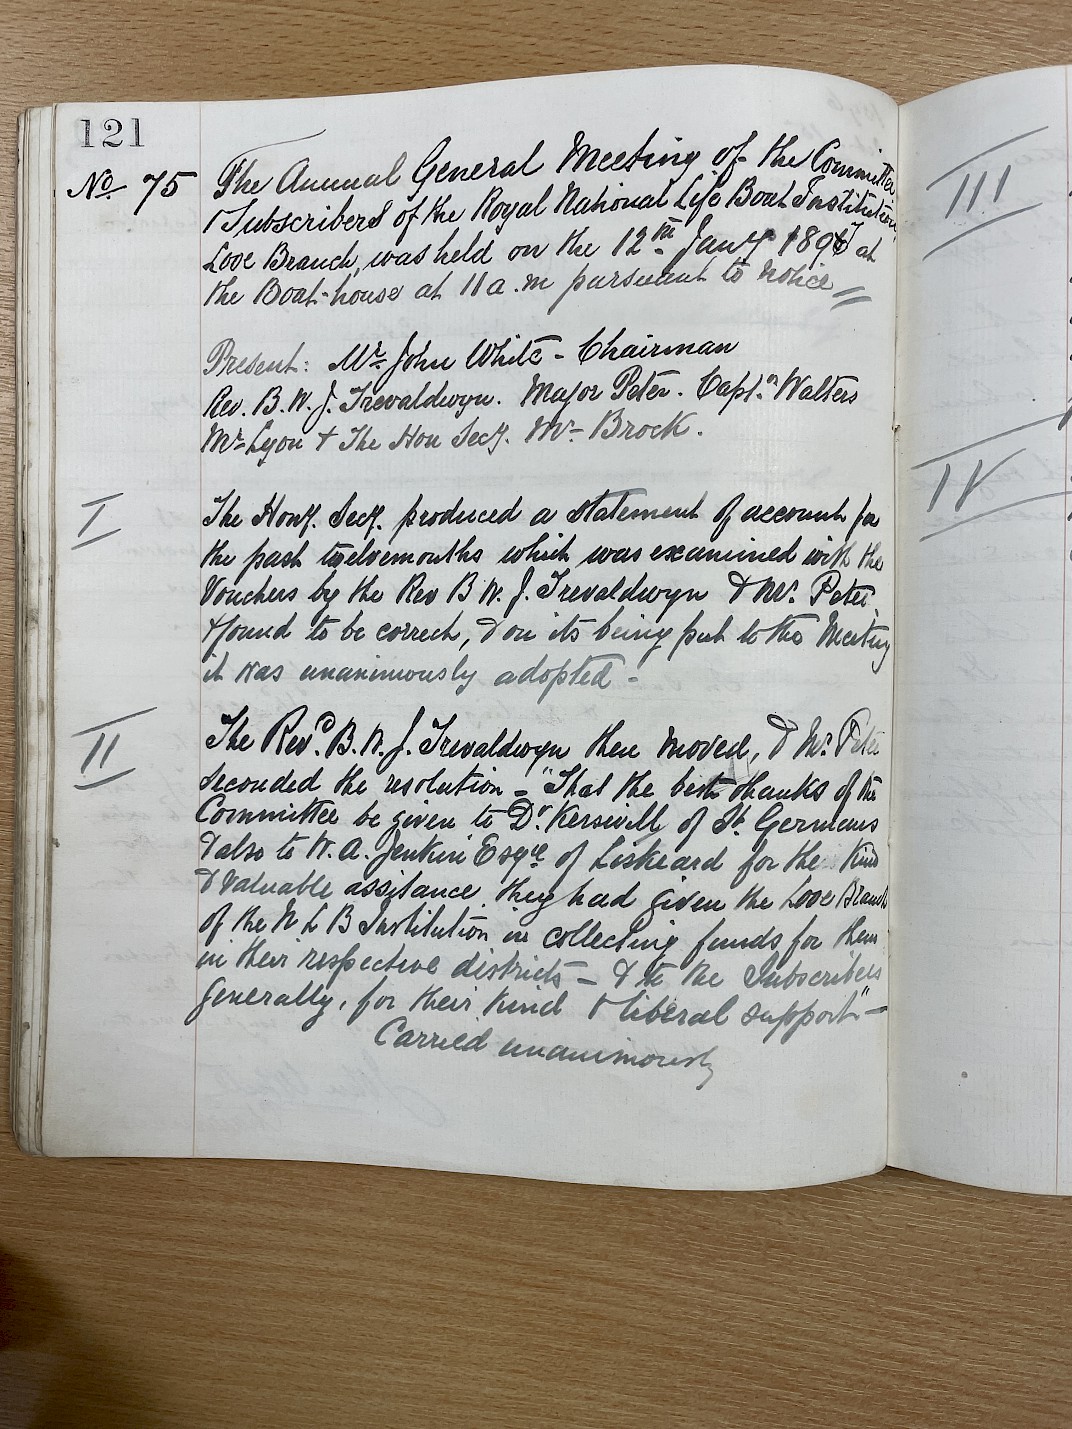 121
No 75
The Annual General Meeting of the Committee
& Subscribers of the Royal National Life Boat Institution,
Looe Branch, was held on the 12th Jany 1897 at
the Boat-house at 11 a.m pursuant to notice
Present: Mr John White - Chairman
Rev. B. W. J. Trevaldwyn. Major Peter. Captn Walters
Mr Lyon + The Hon Secy. Mr Brock.
I
The Hony. Secy. produced a statement of account for
the past twelvemonths which was examined with the
Vouchers by the Rev B W. J. Trevaldwyn & Mr. Peter
& found to be correct, & on its being put to the Meeting
it was unanimously adopted -
II
The Revd. B. W. J. Trevaldwyn then moved, & Mr. Peter
seconded the resolution = "That the best thanks of the
Committee be given to Dr. Kerswill of St. Germans
& also to W. A. Jenkin Esqre of Liskeard for the Kind
& valuable assitance they had given the Looe Branch
of the N L B Institution in collecting funds for them
in their respective districts - & to the Subscribers
generally, for their kind & liberal support" -
Carried unanimously
III
IV